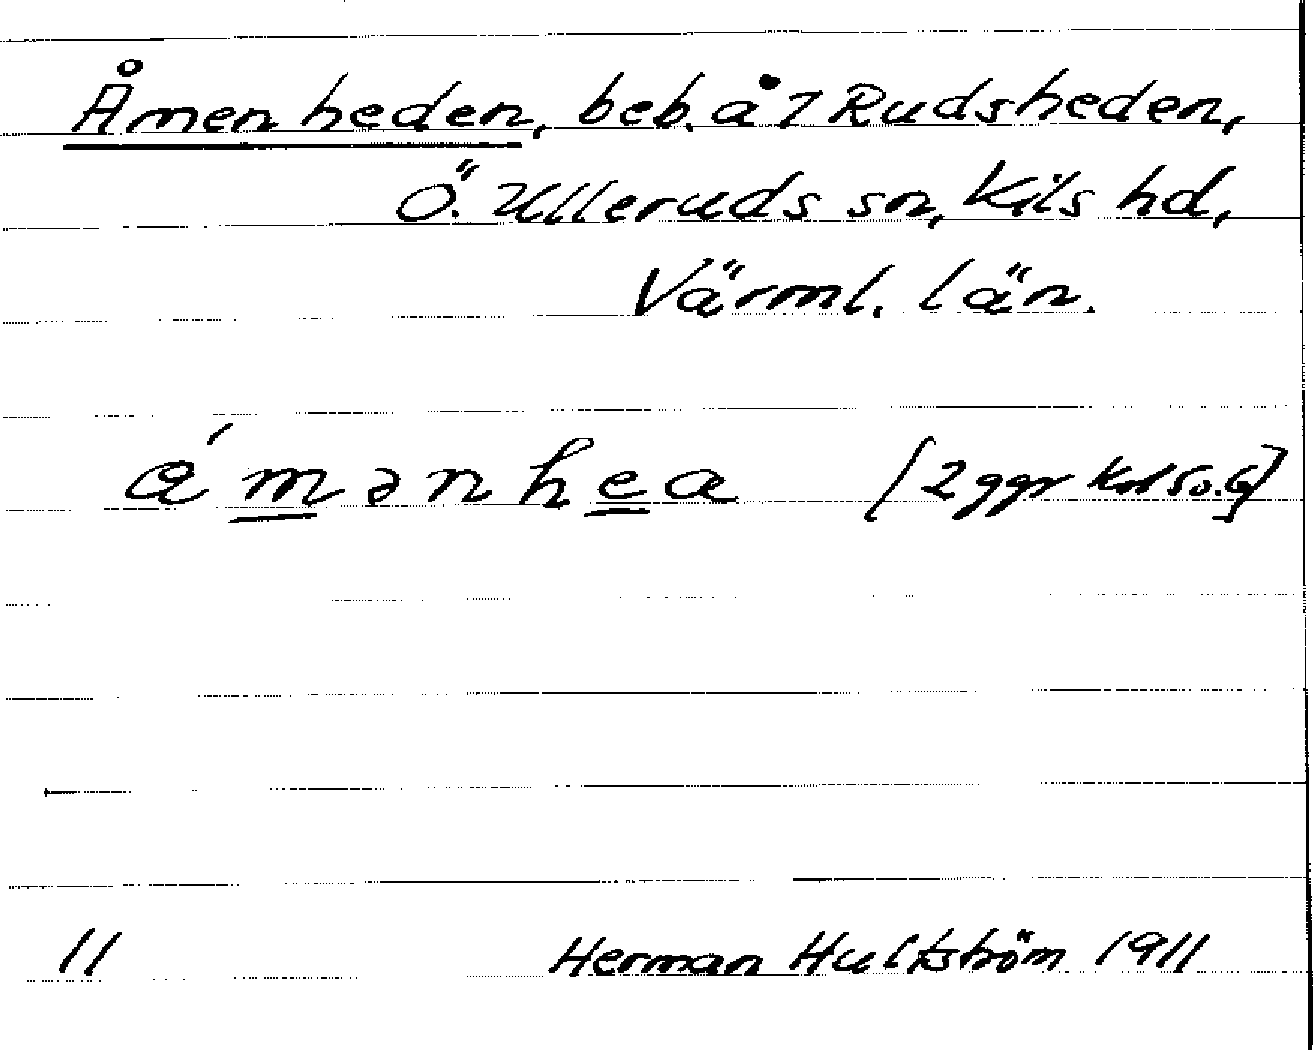 Åmenheden, beb. å 1 Rudsheden,
Ö. Ulleruds sn, Kils hd,
Värml. län.
a´mənhea [2 ggr
11 Herman Hultström 1911